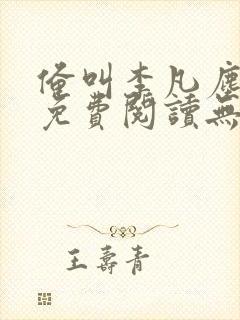 俺叫李凡塵
免費閱讀無
王壽青